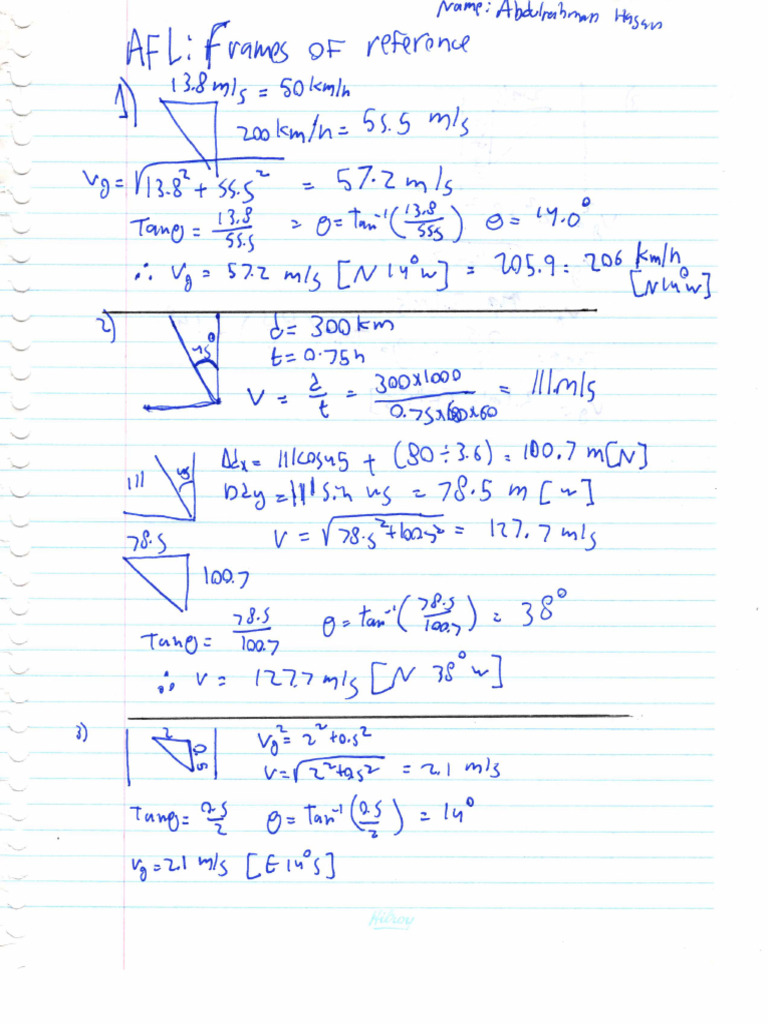 Name: Abdulrahman Hasan
AFL: Frames of reference
1)
13.8 m/s = 50 km/h
200 km/h = 55.5 m/s
Vg = √13.8² + 55.5² = 57.2 m/s
Tanθ = 13.8/55.5 = θ = tan⁻¹(13.8/555) θ = 14.0°
∴ Vg = 57.2 m/s [N 14° W] = 205.9 = 206 km/h [N 14° W]
2)
45°
d = 300 km
t = 0.75 h
V = d/t = 300x1000/0.75x60x60 = 111. m/s
111 45
Δdx = 111cos45 + (80 ÷ 3.6) = 100.7 m [N]
Δdy = 111 sin 45 = 78.5 m [W]
78.5
V = √78.5² + 100.7² = 127.7 m/s
100.7
Tanθ = 78.5/100.7 θ = tan⁻¹(78.5/100.7) = 38°
∴ V = 127.7 m/s [N 38° W]
3)
2
0.5
Vg² = 2² + 0.5²
V = √2² + 0.5² = 2.1 m/s
Tanθ = 0.5/2 θ = Tan⁻¹(0.5/2) = 14°
Vg = 2.1 m/s [E 14° S]
Hilroy